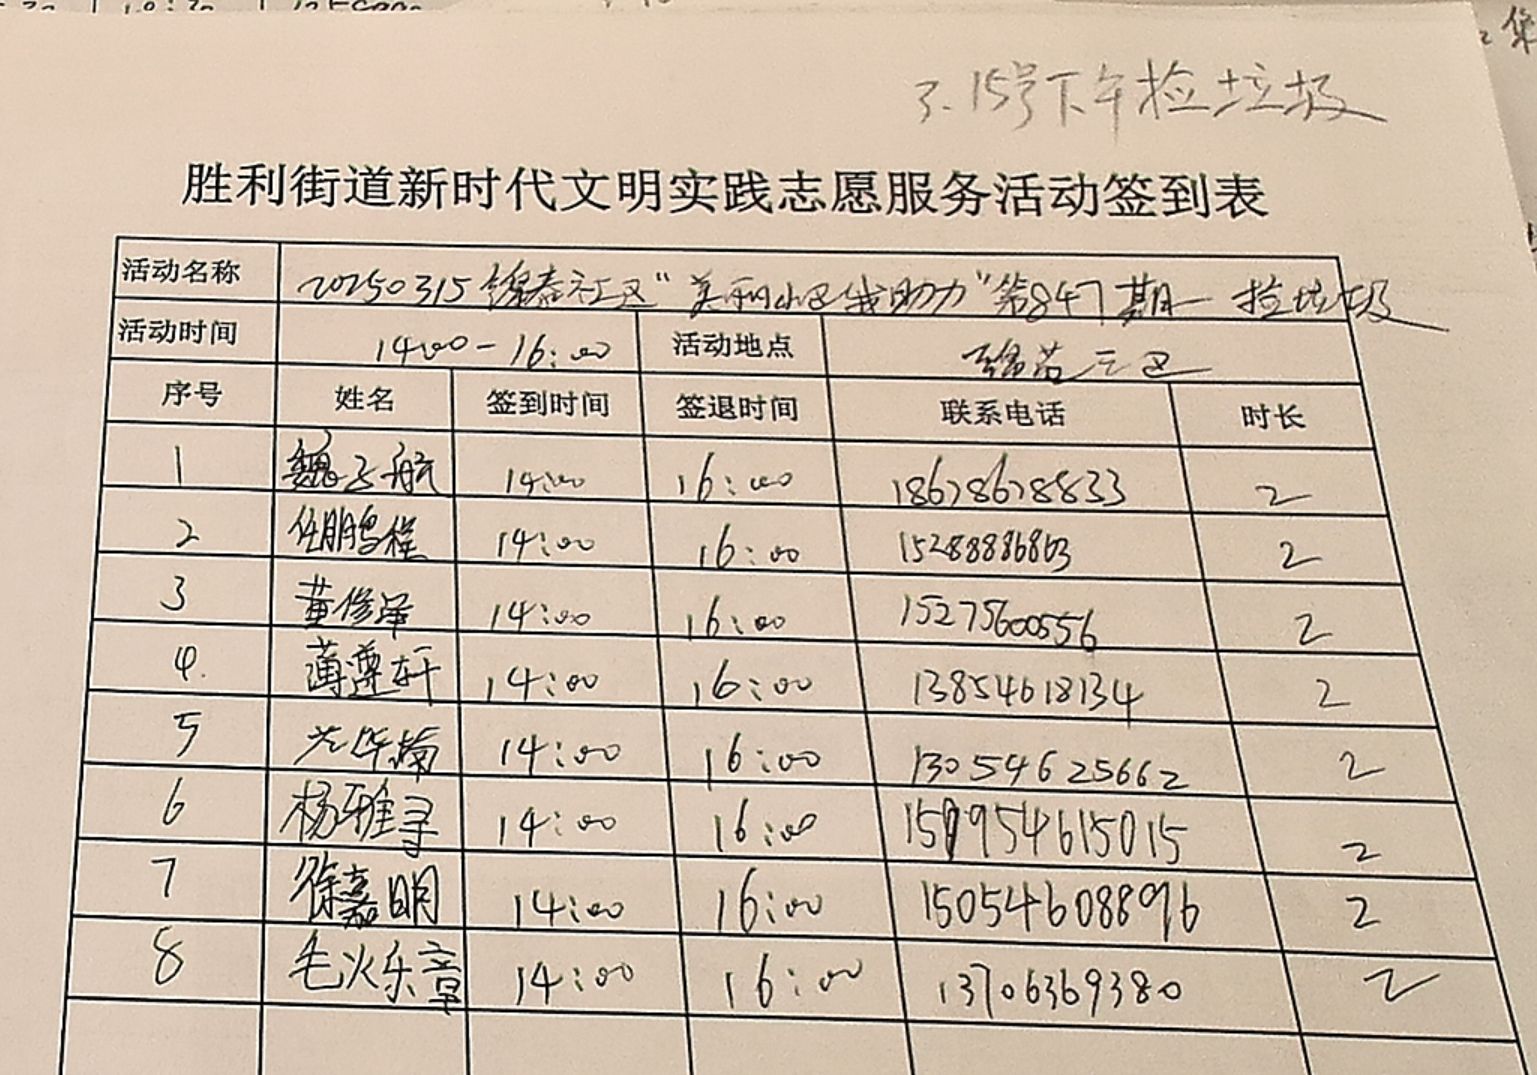 3.15号下午捡垃圾
胜利街道新时代文明实践志愿服务活动签到表
活动名称 20250315锦泰社区“美丽小区我助力”第847期—捡垃圾
活动时间 14:00-16:00 活动地点 锦苑三区
序号 姓名 签到时间 签退时间 联系电话 时长
1 魏子航 14:00 16:00 18678678833 2
2 任鹏程 14:00 16:00 15288886863 2
3 董修泽 14:00 16:00 15275600556 2
4. 薄遵轩 14:00 16:00 13854618134 2
5 14:00 16:00 13054625662 2
6 杨雅寻 14:00 16:00 2
7 徐嘉明 14:00 16:00 15054608896 2
8 14:00 16:00 13706369380 2